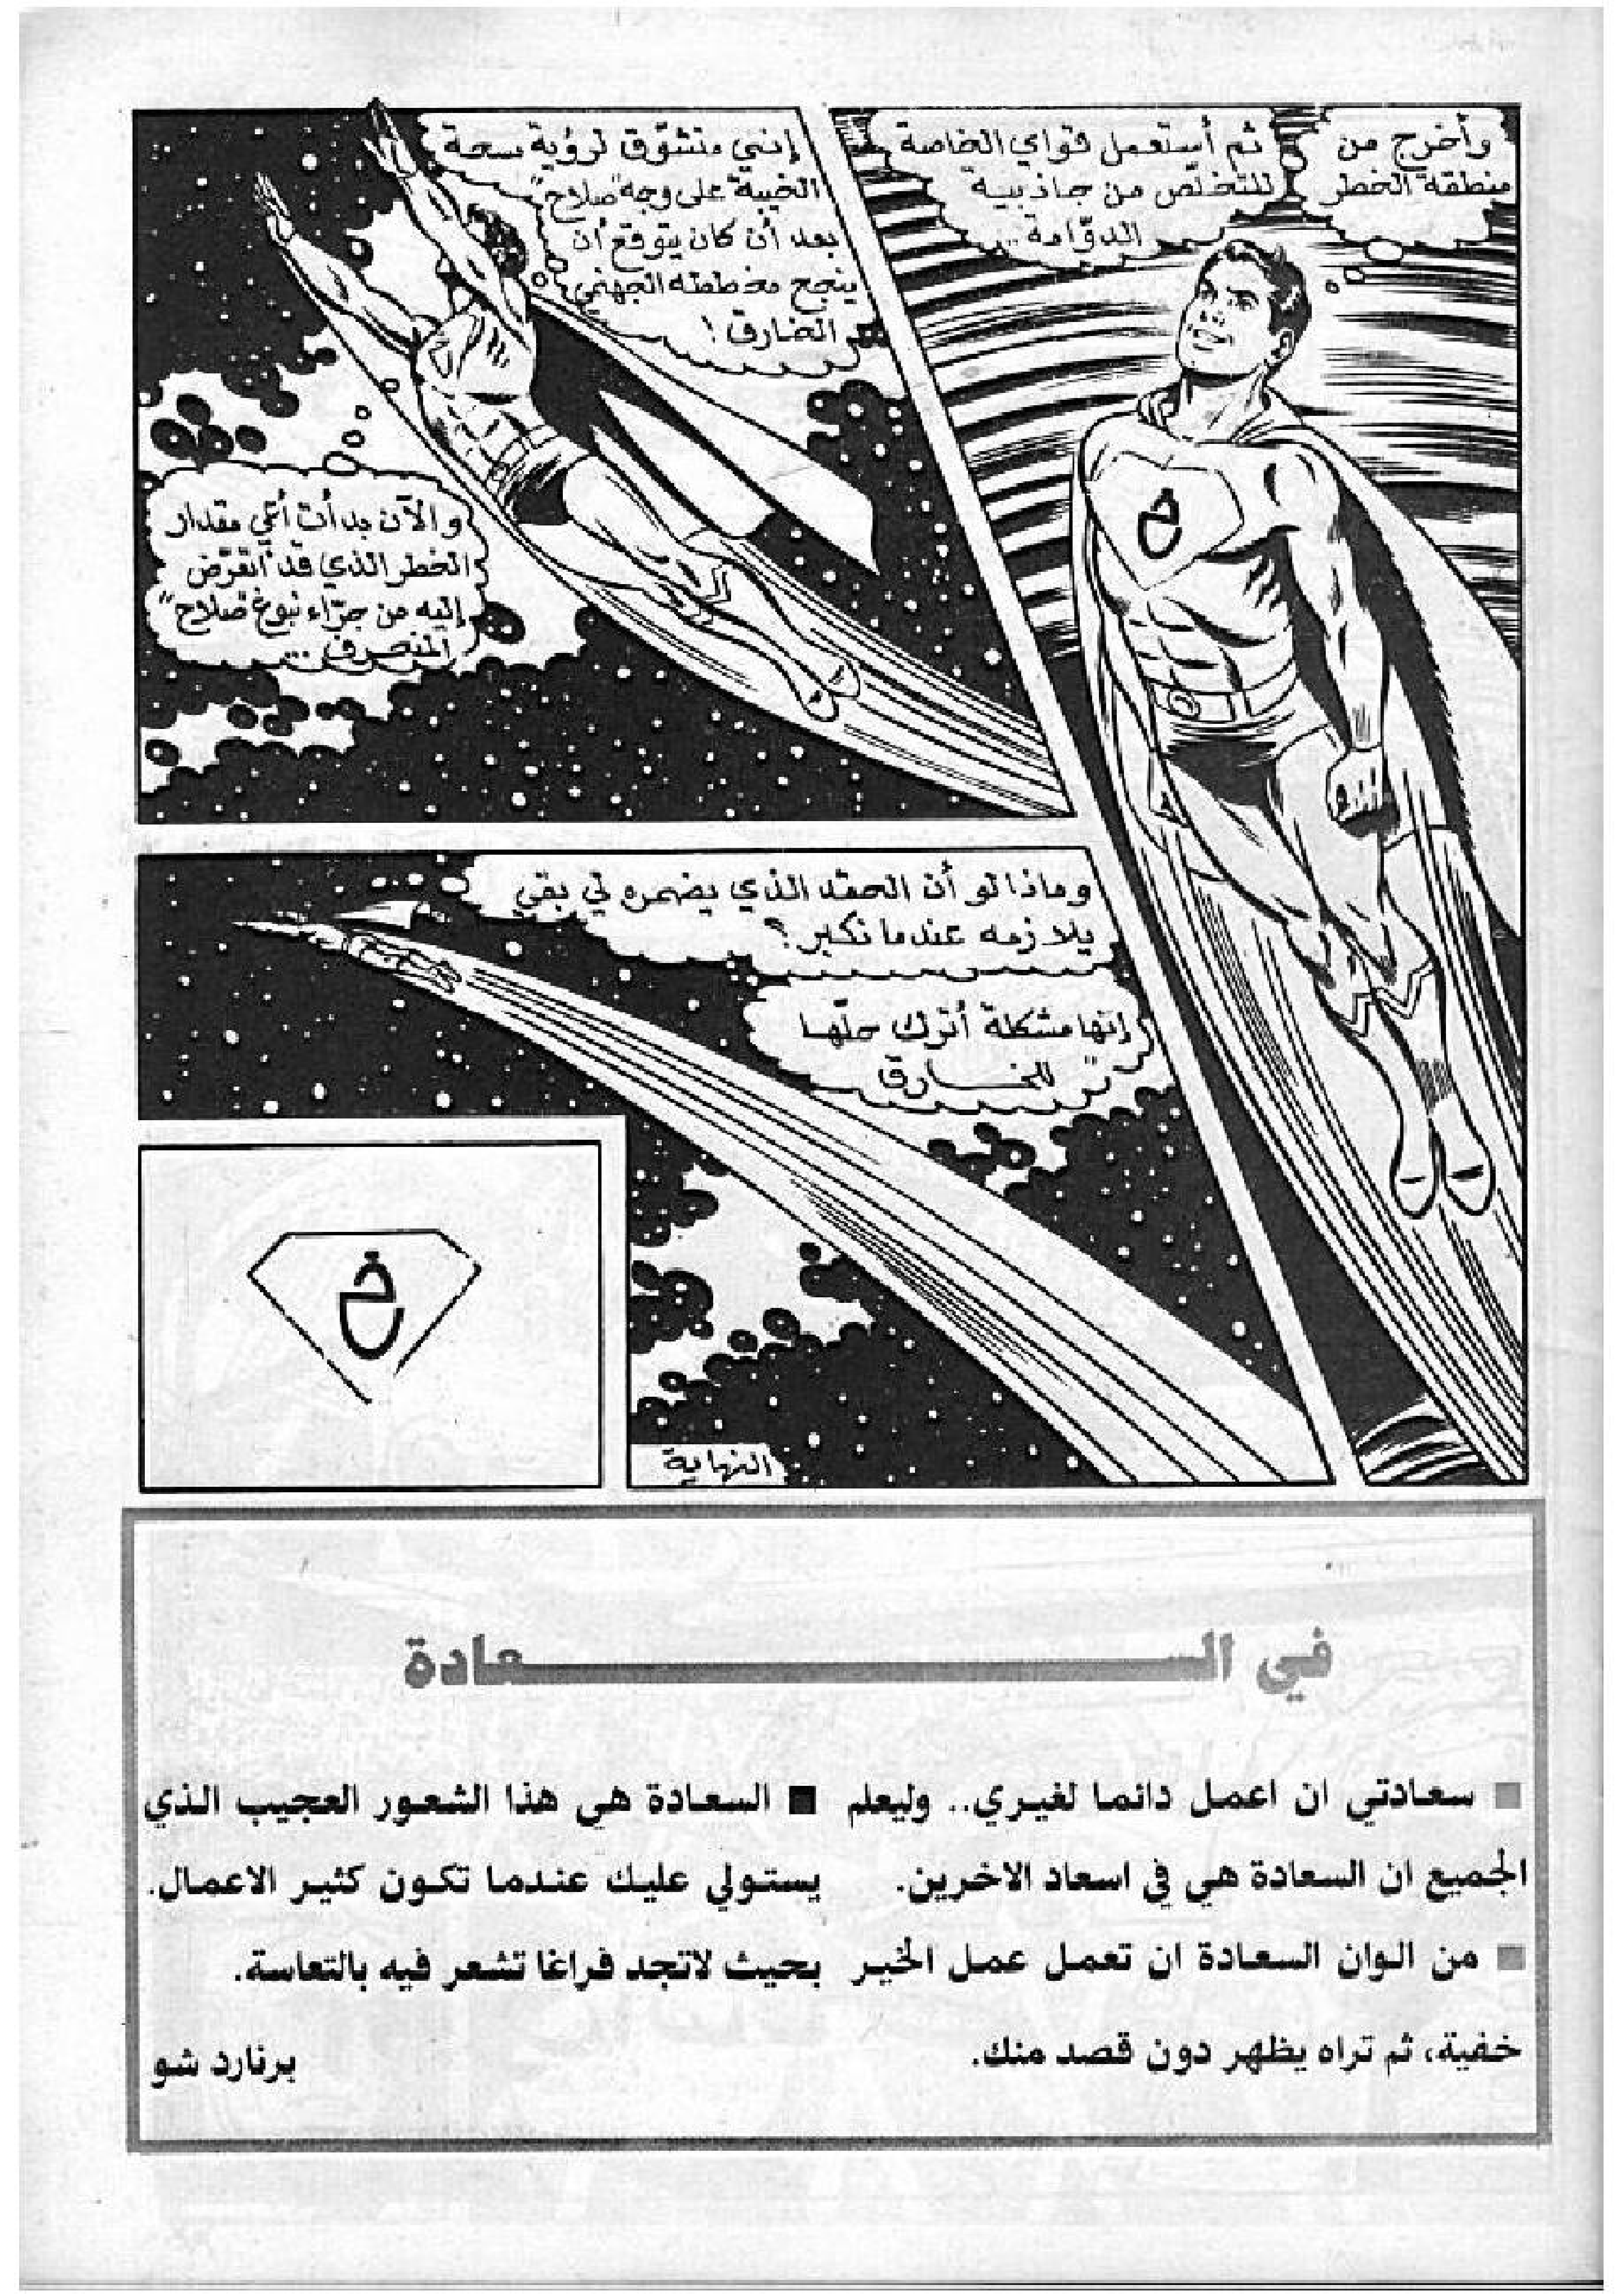 وأخرج من
منطقة الخطر
ثم أستعمل قواي الخاصة
للتخلّص من جاذبية
الدوّامة..
إنني متشوّق لرؤية سحة
الخيبة على وجه "صلاح"
بعد أن كان يتوقع أن
ينجح مخططه الجهنمي
الخارق!
والآن بدأت أعي مقدار
الخطر الذي قد أتعرّض
إليه من جرّاء نبوغ "صلاح"
المنصرف...
وماذا لو أن الحقد الذي يضمره لي بقي
يلازمه عندما نكبر؟
إنها مشكلة أترك حلّها
"للخارق"
خ
خ
النهاية
في السعادة
■ سعادتي ان اعمل دائما لغيري.. وليعلم
الجميع ان السعادة هي في اسعاد الاخرين.
■ من الوان السعادة ان تعمل عمل الخير
خفية، ثم تراه يظهر دون قصد منك.
■ السعادة هي هذا الشعور العجيب الذي
يستولي عليك عندما تكون كثير الاعمال.
بحيث لاتجد فراغا تشعر فيه بالتعاسة.
برنارد شو